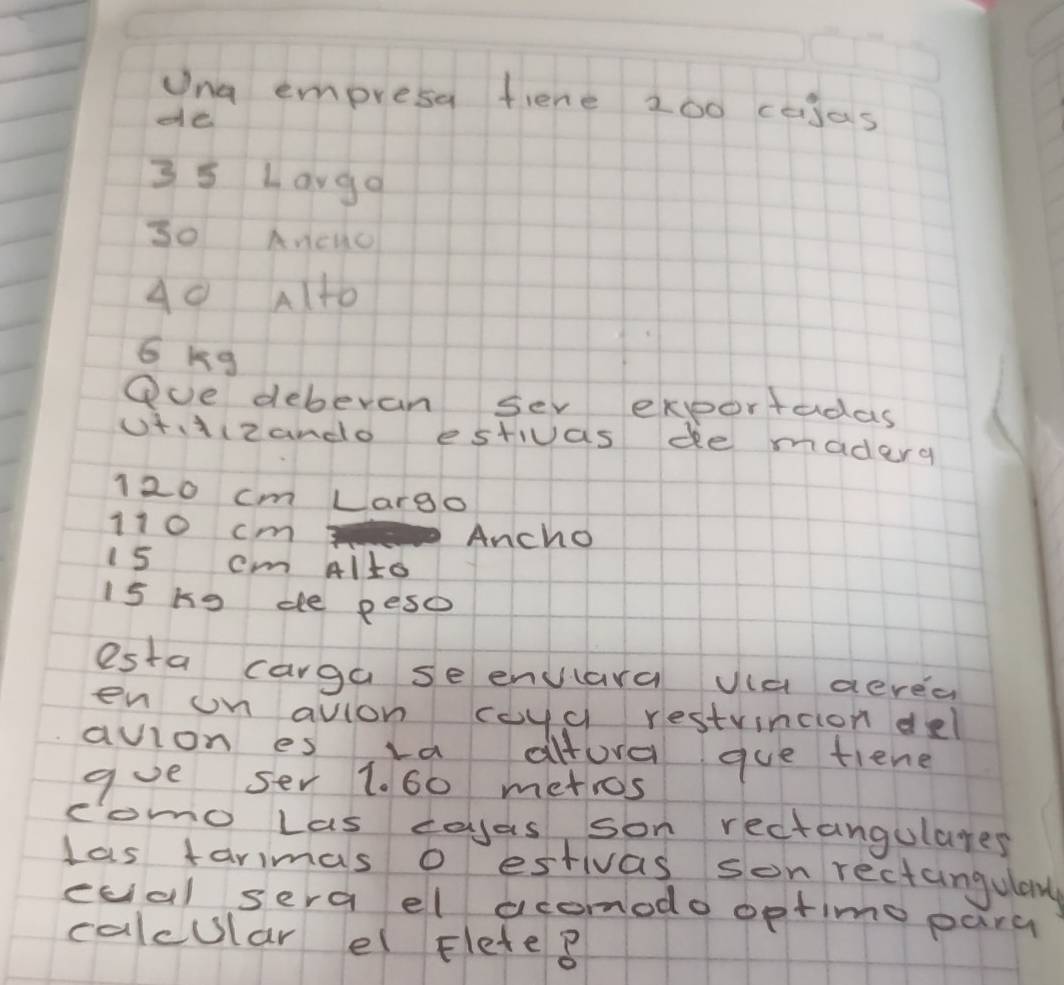 Una empresa tiene 200 cajas
de
35 Largo
30 Ancho
40 Alto
6 kg
Que deberan ser exportadas
utilizando estivas de madera
120 cm Largo
110 cm Ancho
15 cm Alto
15 kg de peso
esta carga se enviara via aerea
en un avion cuya restrincion del
avion es La altura que tiene
que ser 1.60 metros
como Las cajas son rectangulares
Las tarimas o estivas son rectangulares
cual sera el acomodo optimo para
calcular el Flete?